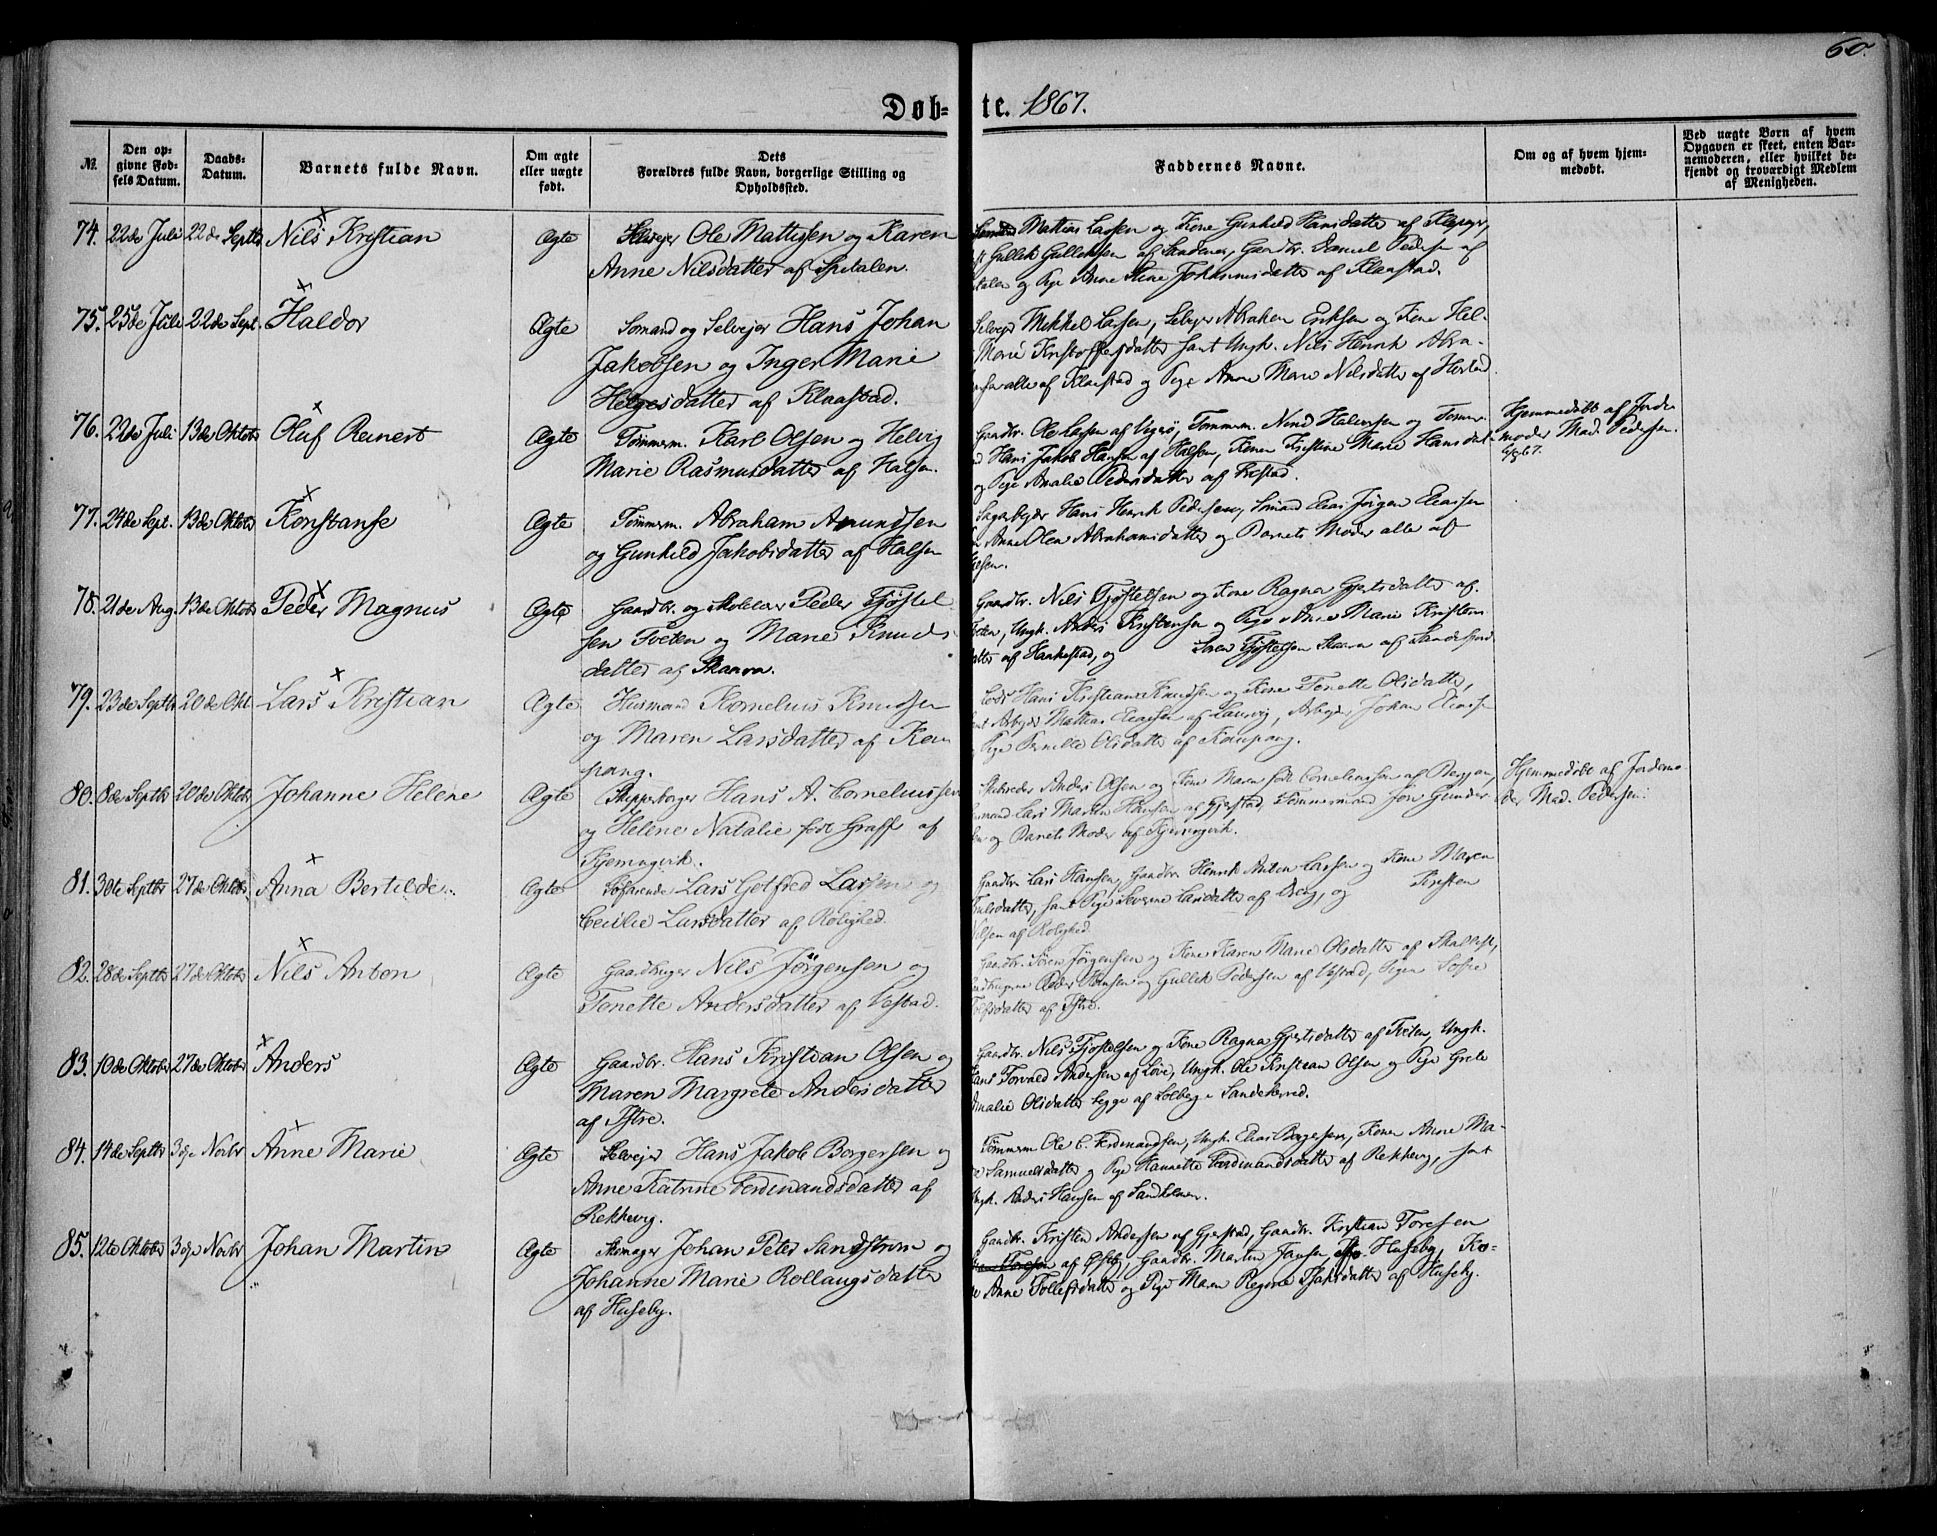 60.
Døb= te. 1867.
№
Den op-
givne Fød-
sels Datum.
Daabs-
Datum.
Barnets fulde Navn.
Om ægte
eller uægte
født.
Dets
Forældres fulde Navn, borgerlige Stilling og
Opholdssted.
Faddernes Navne.
Om og af hvem hjem-
medøbt.
Ved uægte Børn af hvem
Opgaven er skeet, enten Bar-
nemoderen, eller hvilket be-
kjendt og troværdigt Medlem
af Menigheden.
74. 22de Juli 22de Septbr Nils Kristian Ægte Selvejer Ole Mattissen og Karen
Anne Nilsdatter af Spitalen.
Mattias Larsen og Kone Gunhild Hansdatter af
Gullik Gulliksen af Sandener, Gaardbr. Samuel Pedersen af
talen og Pige Anne Stine Johannesdatter af Klaastad.
75. 25de Juli 22de Sept. Haldor Ægte Sømand og Selvejer Hans Johan
Jakobsen og Inger Marie
Helgesdatter af Klaastad.
Selvejer Mikkel Larsen, Selvejer Abraham Eriksen og Kone Hel-
Marie Kristoffersdatter samt Ungk. Nils Henrik Abra-
alle af Klaastad og Pige Anne Marie Nilsdatter af
76. 22de Juli 13de Oktobr Oluf Reinert Ægte Tømmerm. Karl Olsen og Helvig
Marie Rasmusdatter af Halsen.
Gaardbr. Ole Larsen af Tømmerm. Halvorsen og Tømmer-
Hans Jakob Hansen af Halsen, Konen Kristine Marie Hansdat-
og Pige Amalie Pedersdatter af
Hjemmedøbt af Jorde-
moder Mad. Pedersen.
77. 24de Sept. 13de Oktobr Konstanse Ægte Tømmerm. Abraham Amundsen
og Gunhild Jakobsdatter af Halsen
Sagarbejder Hans Henrik Pedersen, Sømand Elias Jørgen Eliassen
Anne Olea Abrahamsdatter og Barnets Moder alle af
78. 21de Aug. 13de Oktobr Peder Magnus Ægte Gaardbr. og Skolelærer Peder Tjøstel
sen Tveten og Marie Knuds
datter af Skaarn.
Gaardbr. Nils Tjøstelsen og Kone Ragna Gjertsdatter af
Tveten, Ungk. Anders Kristensen og Pige Anne Marie Kristens
datter af Hankestad, og Søren Tjøstelsen Skaarn af Sandefjord
79. 23de Septbr 20de Okt. Lars Kristian Ægte Husmand Kornelius Knudsen
og Maren Larsdatter af Kau
pang.
Lods Hans Kristian Knudsen og Kone Tonette Olsdatter,
Arbejder Mattias Eliassen af Laurvig, Arbejder Johan Eliassen
Pige Pernille Olsdatter af Kaupang.
80. 8de Septbr 20de Oktobr Johanne Helene Ægte Skipperborger Hans A. Corneliussen
og Helene Natalie født Graff af
Kjerringvik.
Anders Olsen og Kone Maren født Corneliussen af Bergen,
Lars Martin Hansen af Gjerstad, Tømmermand Jon Gunder
og Barnets Moder af Kjerringvik.
Hjemmedøbt af Jordemo
der Mad. Pedersen.
81. 30te Septbr 27de Oktobr Anna Bertilde. Ægte Søfarende Lars Gotfred Larsen og
Cecilie Larsdatter af Rolighed.
Gaardbr. Lars Hansen, Gaardbr. Henrik Anton Larsen og Kone Maren
datter, samt Pige Severine Larsdatter af Berg, og Kristen
Nilsen af Rolighed.
82. 28de Septbr 27de Oktobr Nils Anton Ægte Gaardbruger Nils Jørgensen og
Tonette Andersdatter af Vestad.
Gaardbr. Søren Jørgensen og Kone Karen Marie Olsdatter af
Peder Hansen og Gullik Pedersen af Vestad, Pigen Sofie
datter af Istre.
83. 10de Oktobr 27de Oktobr Anders Ægte Gaardbr. Hans Kristian Olsen og
Maren Margrete Andersdatter
af Istre.
Gaardbr. Nils Tjøstelsen og Kone Ragna Gjertsdatter af Tveten, Ungk.
Hans Torvald Andersen af Løve, Ungk. Ole Kristian Olsen og Pige Grete
Amalie Olsdatter begge af Solberg i Sandeherred.
84. 14de Septbr 3dje Novbr Anne Marie Ægte Selvejer Hans Jakob Borgersen og
Anne Katrine Ferdinandsdatter af
Rekkevig.
Tømmerm. Ole C. Ferdinandsen, Ungk. Elias Borgersen, Konen Anne Ma-
Samuelsdatter og Pige Hannette Ferdinandsdatter af Rekkevig, samt
Ungk. Anders Hansen af
85. 12te Oktobr 3dje Novbr Johan Martin Ægte Skomager Johan Peter Sandstrøm og
Johanne Marie Rollaugsdatter
af Huseby.
Gaardbr. Kristen Andersen af Gjerstad, Gaardbr. Kristian Toresen
af Østby, Gaardbr. Martin Jansen Huseby, Ko-
Anne Tollefsdatter og Pige Maren Regine Isaksdatter af Huseby.